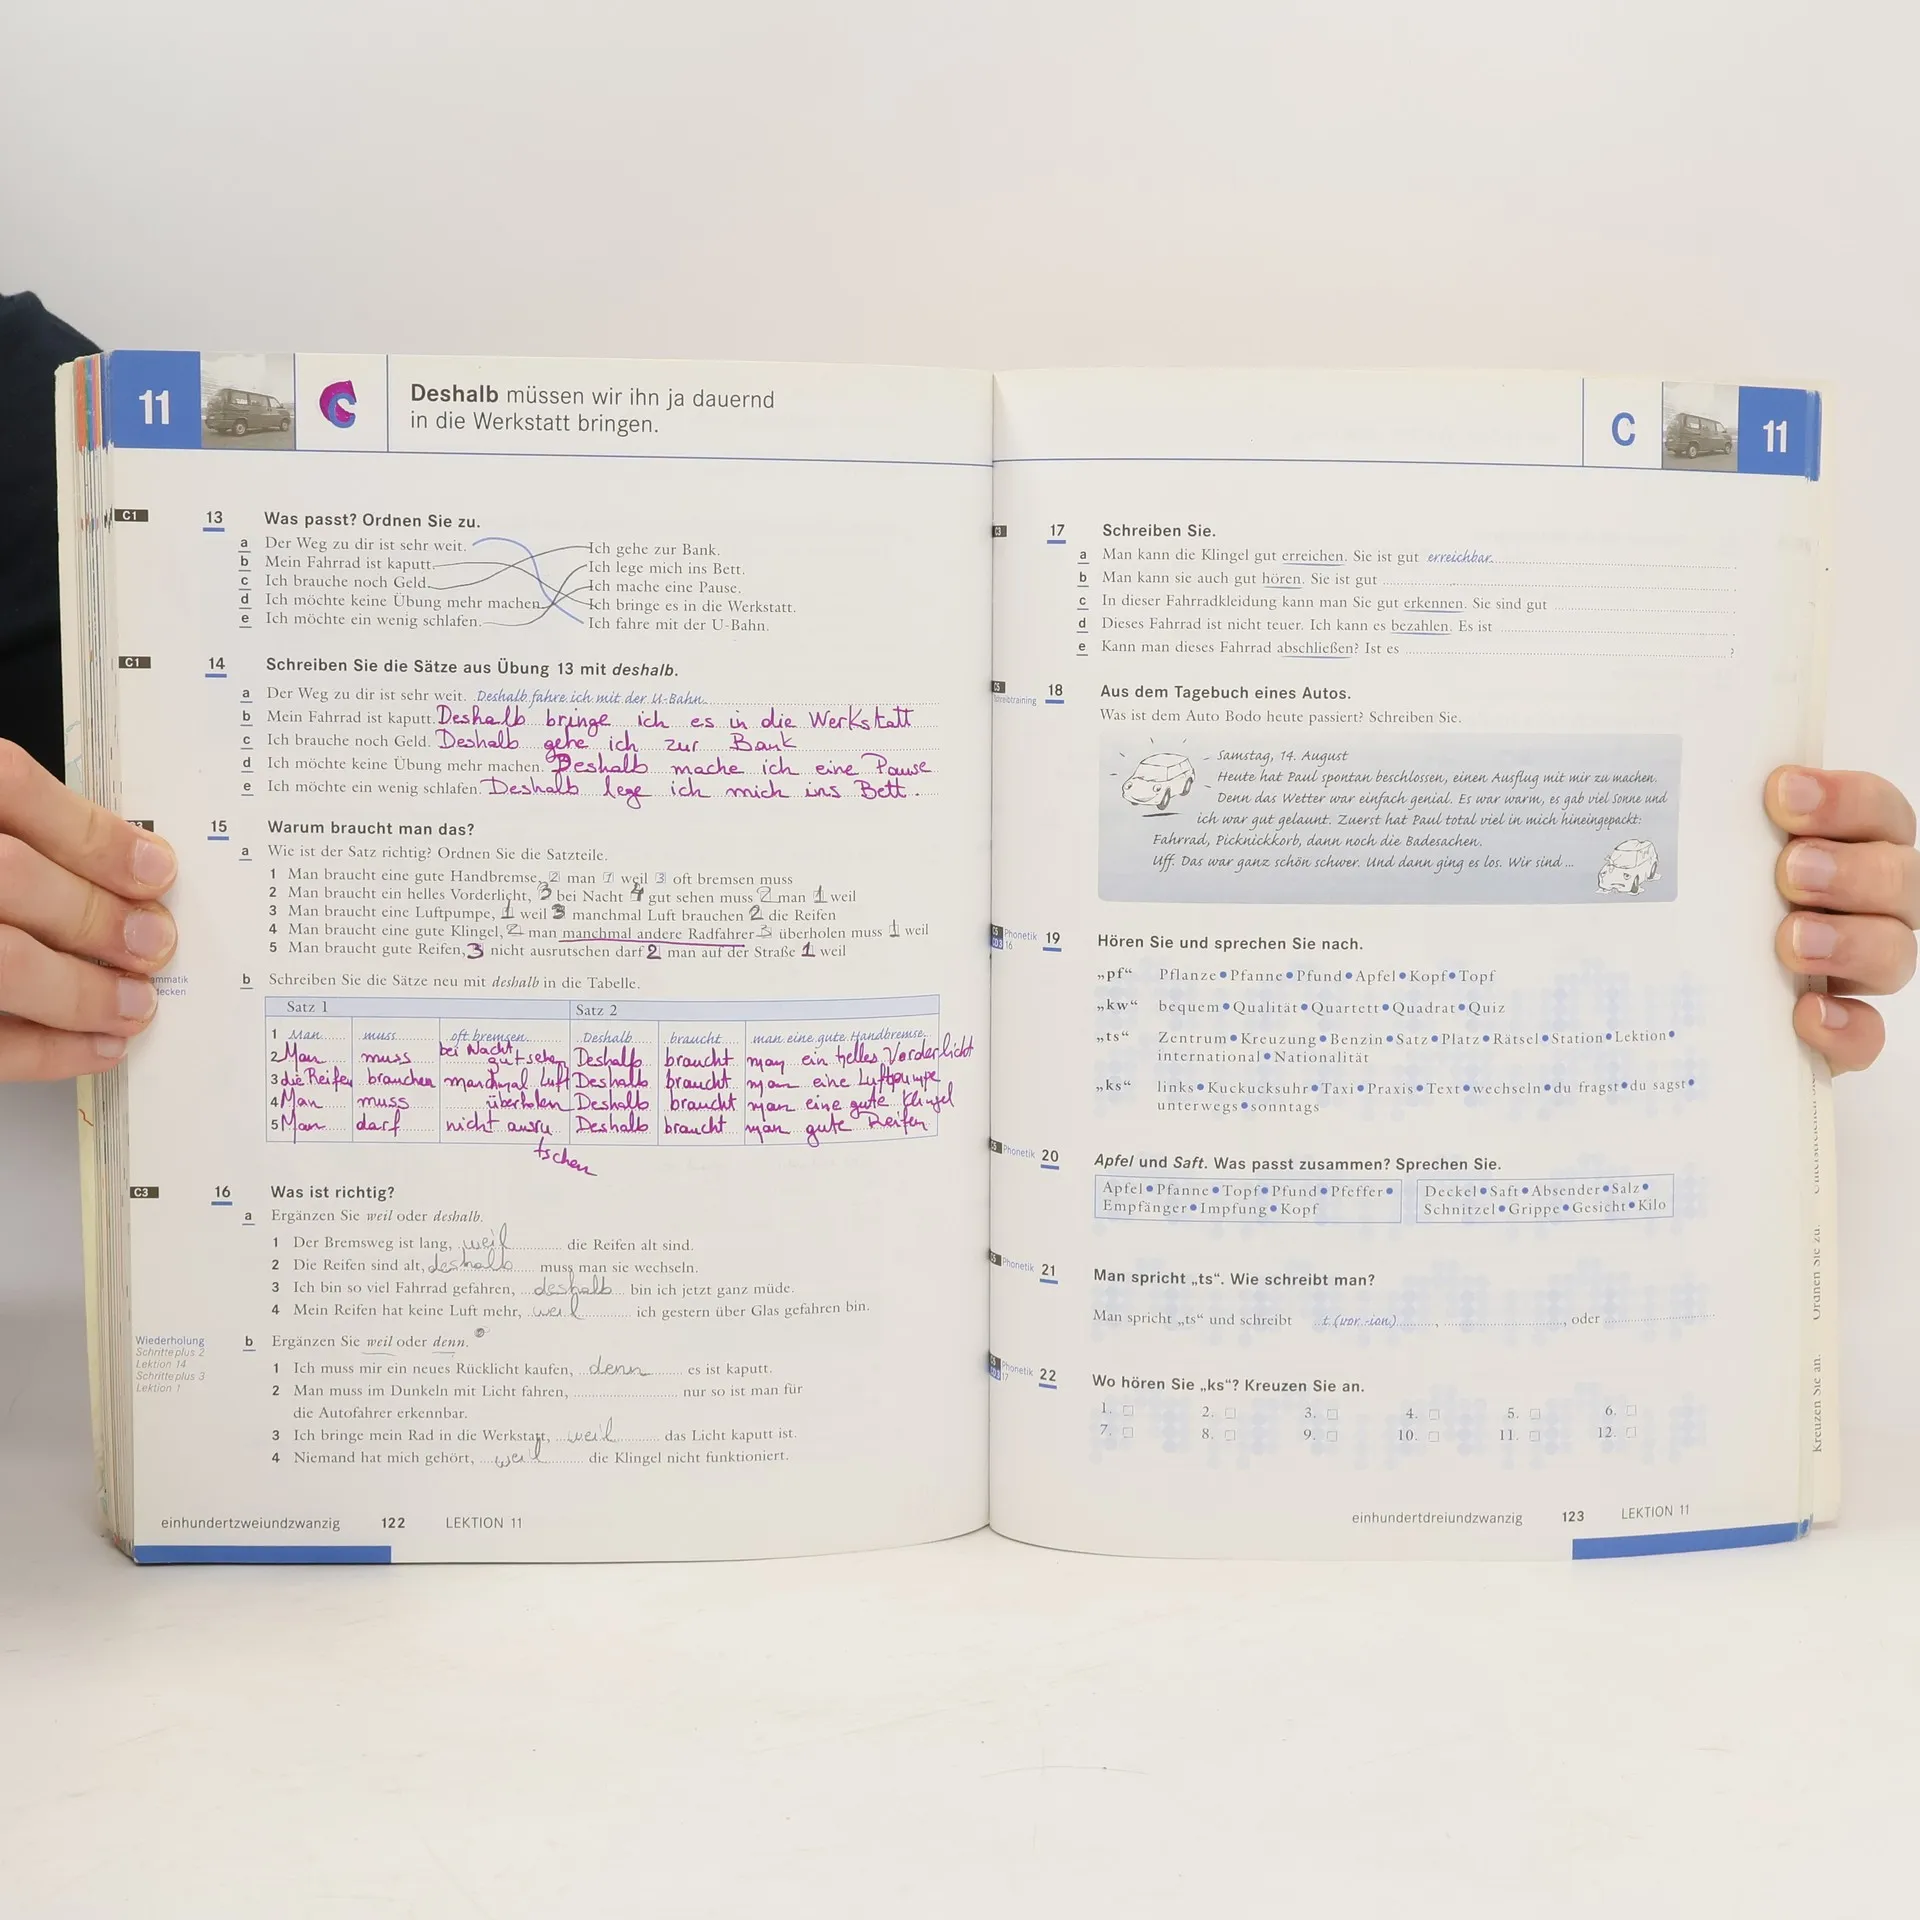 11
C
Deshalb müssen wir ihn ja dauernd
in die Werkstatt bringen.
C1
13 Was passt? Ordnen Sie zu.
a Der Weg zu dir ist sehr weit. Ich gehe zur Bank.
b Mein Fahrrad ist kaputt. Ich lege mich ins Bett.
c Ich brauche noch Geld. Ich mache eine Pause.
d Ich möchte keine Übung mehr machen. Ich bringe es in die Werkstatt.
e Ich möchte ein wenig schlafen. Ich fahre mit der U-Bahn.
C1
14 Schreiben Sie die Sätze aus Übung 13 mit deshalb.
a Der Weg zu dir ist sehr weit. Deshalb fahre ich mit der U-Bahn.
b Mein Fahrrad ist kaputt. Deshalb bringe ich es in die Werkstatt
c Ich brauche noch Geld. Deshalb gehe ich zur Bank
d Ich möchte keine Übung mehr machen. Deshalb mache ich eine Pause
e Ich möchte ein wenig schlafen. Deshalb lege ich mich ins Bett.
15 Warum braucht man das?
a Wie ist der Satz richtig? Ordnen Sie die Satzteile.
1 Man braucht eine gute Handbremse, 2 man 1 weil 3 oft bremsen muss
2 Man braucht ein helles Vorderlicht, 3 bei Nacht 4 gut sehen muss 2 man 1 weil
3 Man braucht eine Luftpumpe, 1 weil 3 manchmal Luft brauchen 2 die Reifen
4 Man braucht eine gute Klingel, 2 man manchmal andere Radfahrer 3 überholen muss 1 weil
5 Man braucht gute Reifen, 3 nicht ausrutschen darf 2 man auf der Straße 1 weil
b Schreiben Sie die Sätze neu mit deshalb in die Tabelle.
Satz 1 Satz 2
1 Man muss oft bremsen. Deshalb braucht man eine gute Handbremse.
2 Man muss bei Nacht gut sehen Deshalb braucht man ein helles Vorderlicht
3 die Reifen brauchen manchmal Luft Deshalb braucht man eine Luftpumpe
4 Man muss überholen Deshalb braucht man eine gute Klingel
5 Man darf nicht ausru Deshalb braucht man gute Reifen
tschen
C3
16 Was ist richtig?
a Ergänzen Sie weil oder deshalb.
1 Der Bremsweg ist lang, weil die Reifen alt sind.
2 Die Reifen sind alt, deshalb muss man sie wechseln.
3 Ich bin so viel Fahrrad gefahren, deshalb bin ich jetzt ganz müde.
4 Mein Reifen hat keine Luft mehr, weil ich gestern über Glas gefahren bin.
Wiederholung
Schritte plus 2
Lektion 14
Schritte plus 3
Lektion 1
b Ergänzen Sie weil oder denn.
1 Ich muss mir ein neues Rücklicht kaufen, denn es ist kaputt.
2 Man muss im Dunkeln mit Licht fahren, nur so ist man für
die Autofahrer erkennbar.
3 Ich bringe mein Rad in die Werkstatt, weil das Licht kaputt ist.
4 Niemand hat mich gehört, weil die Klingel nicht funktioniert.
einhundertzweiundzwanzig 122 LEKTION 11
C
11
17 Schreiben Sie.
a Man kann die Klingel gut erreichen. Sie ist gut erreichbar.
b Man kann sie auch gut hören. Sie ist gut
c In dieser Fahrradkleidung kann man Sie gut erkennen. Sie sind gut
d Dieses Fahrrad ist nicht teuer. Ich kann es bezahlen. Es ist
e Kann man dieses Fahrrad abschließen? Ist es ?
18 Aus dem Tagebuch eines Autos.
Was ist dem Auto Bodo heute passiert? Schreiben Sie.
Samstag, 14. August
Heute hat Paul spontan beschlossen, einen Ausflug mit mir zu machen.
Denn das Wetter war einfach genial. Es war warm, es gab viel Sonne und
ich war gut gelaunt. Zuerst hat Paul total viel in mich hineingepackt:
Fahrrad, Picknickkorb, dann noch die Badesachen.
Uff. Das war ganz schön schwer. Und dann ging es los. Wir sind ...
Phonetik 19 Hören Sie und sprechen Sie nach.
16
„pf“ Pflanze • Pfanne • Pfund • Apfel • Kopf • Topf
„kw“ bequem • Qualität • Quartett • Quadrat • Quiz
„ts“ Zentrum • Kreuzung • Benzin • Satz • Platz • Rätsel • Station • Lektion •
international • Nationalität
„ks“ links • Kuckucksuhr • Taxi • Praxis • Text • wechseln • du fragst • du sagst •
unterwegs • sonntags
Phonetik 20 Apfel und Saft. Was passt zusammen? Sprechen Sie.
Apfel • Pfanne • Topf • Pfund • Pfeffer •
Empfänger • Impfung • Kopf
Deckel • Saft • Absender • Salz •
Schnitzel • Grippe • Gesicht • Kilo
Phonetik 21 Man spricht „ts“. Wie schreibt man?
Man spricht „ts“ und schreibt t (vor -ion) , , oder
Phonetik 22 Wo hören Sie „ks“? Kreuzen Sie an.
17
1. 2. 3. 4. 5. 6.
7. 8. 9. 10. 11. 12.
einhundertdreiundzwanzig 123 LEKTION 11
Ordnen Sie zu.
Kreuzen Sie an.